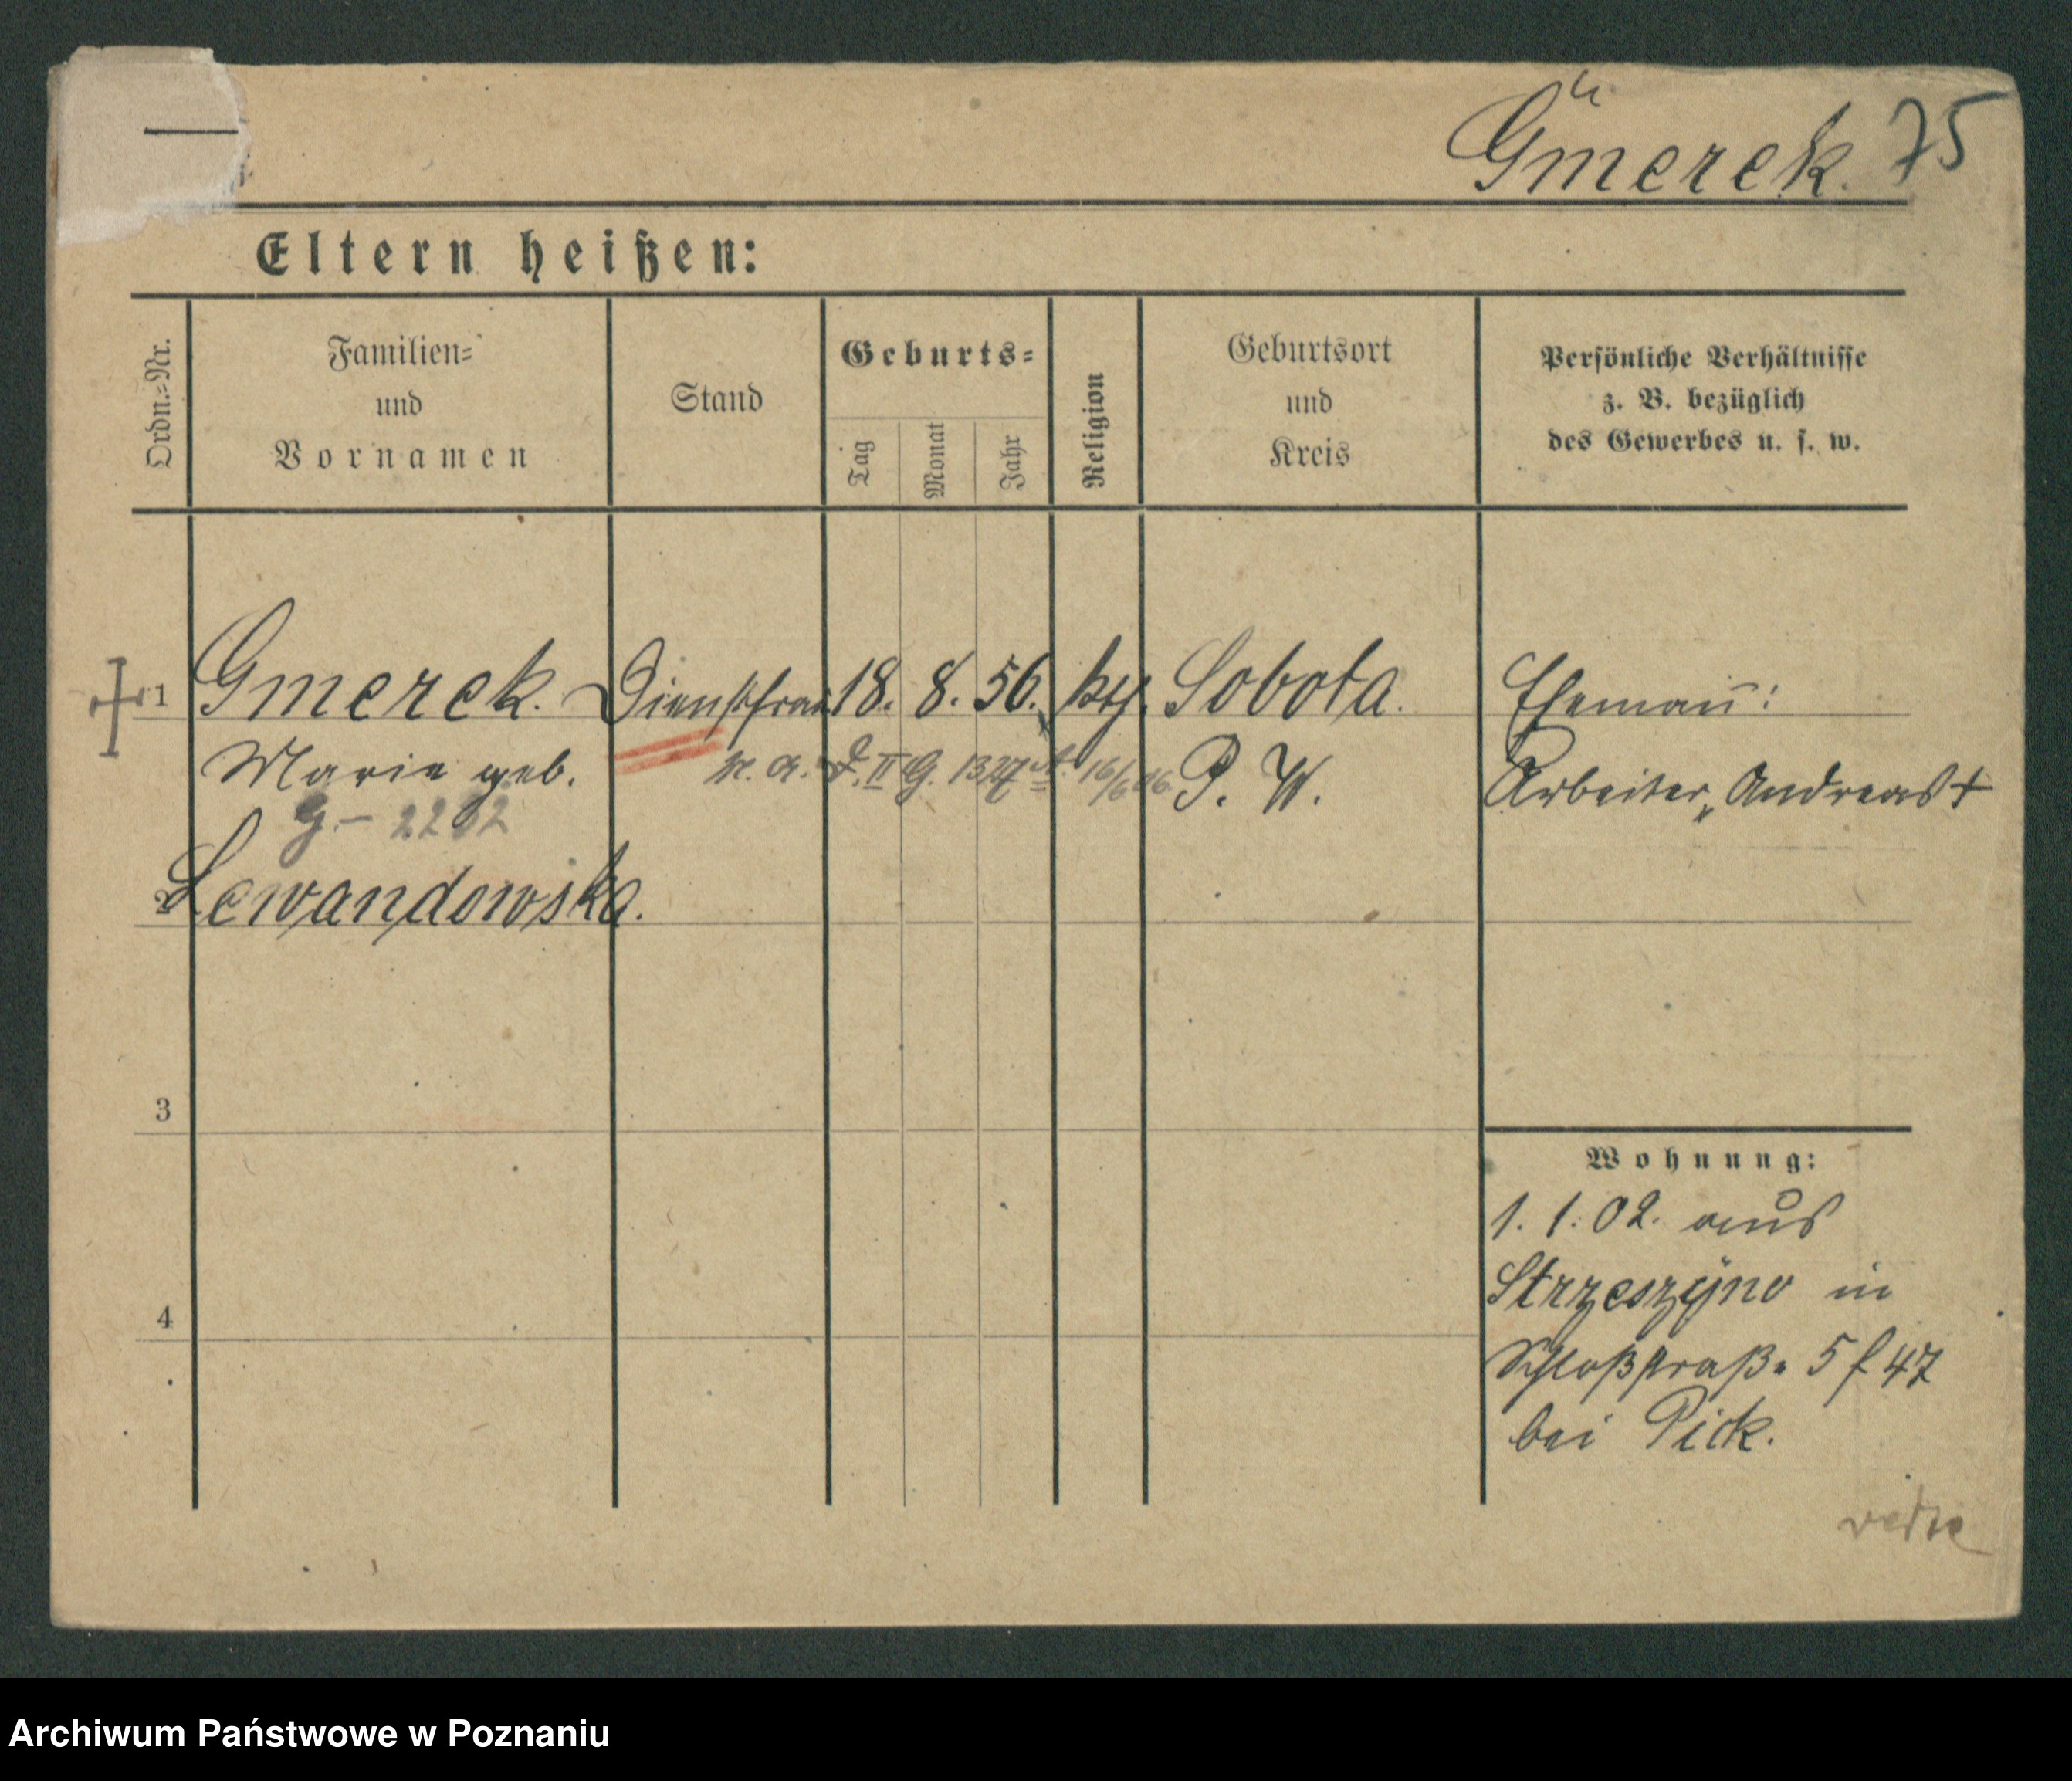 Gmerek. 75
Eltern heißen:
Ordn.=Nr.
Familien=
und
Vornamen
Stand
Geburts=
Tag
Monat
Jahr
Religion
Geburtsort
und
Kreis
Persönliche Verhältnisse
z. B. bezüglich
des Gewerbes u. s. w.
1 Gmerek. Dienstfrau 18. 8. 56. Sobota. Ehemañ:
Marie geb. P. W. Arbeiter, Andreas +
G - 2282
2 Lewandowska.
3
4
Wohnung:
1. 1. 02. aus
Strzeszyno in
Schloßstraß. 5 f 47
bei Pick.
Archiwum Państwowe w Poznaniu